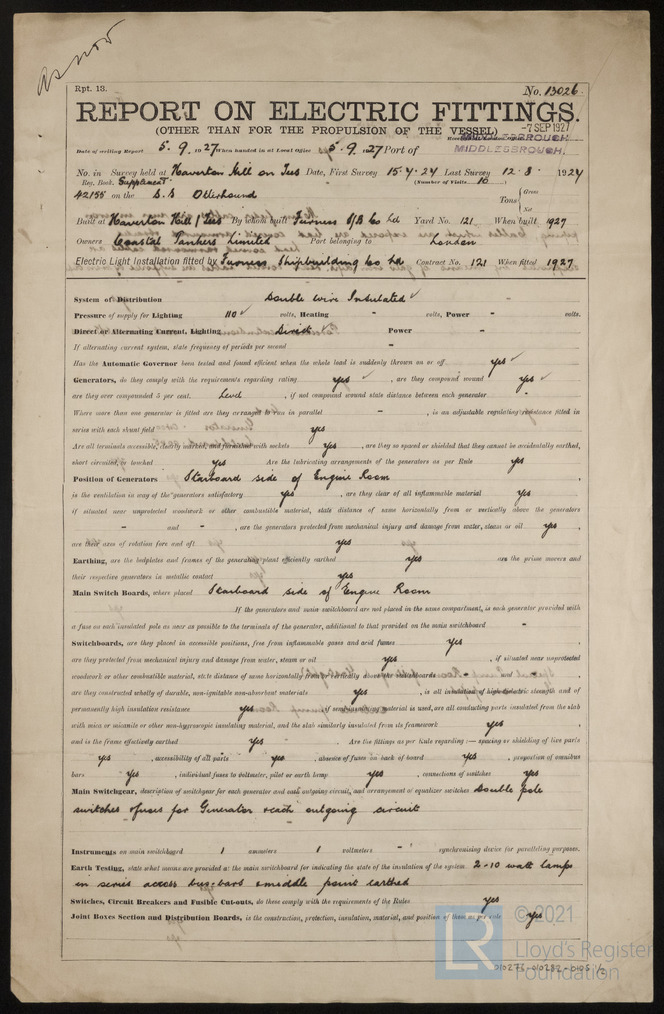 as now
Rpt. 13.
No. 13026.
REPORT ON ELECTRIC FITTINGS.
(OTHER THAN FOR THE PROPULSION OF THE VESSEL)
-7 SEP 1927
MIDDLESBROUGH.
Date of writing Report 5. 9. 1927 When handed in at Local Office 5. 9. 1927 Port of MIDDLESBROUGH.
No. in Survey held at Haverton Hill on Tees Date, First Survey 15.7.24 Last Survey 12.8. 1924
Reg. Book. Supplement. (Number of Visits 10)
42155 on the S.S Otterhound Tons { Gross Net
Built at Haverton Hill / Tees By whom built Furness S/B Co Ltd Yard No. 121 When built 1927
Owners Coastal Tankers Limited Port belonging to London
Electric Light Installation fitted by Furness Shipbuilding Co Ltd Contract No. 121 When fitted 1927
System of Distribution Double Wire Insulated ✓
Pressure of supply for Lighting 110 ✓ volts, Heating - volts, Power - volts.
Direct or Alternating Current, Lighting Direct Power -
If alternating current system, state frequency of periods per second -
Has the Automatic Governor been tested and found efficient when the whole load is suddenly thrown on or off yes ✓
Generators, do they comply with the requirements regarding rating yes ✓, are they compound wound yes ✓
are they over compounded 5 per cent. Level, if not compound wound state distance between each generator -
Where more than one generator is fitted are they arranged to run in parallel -, is an adjustable regulating resistance fitted in
series with each shunt field yes
Are all terminals accessible, clearly marked, and furnished with sockets yes, are they so spaced or shielded that they cannot be accidentally earthed,
short circuited, or touched yes Are the lubricating arrangements of the generators as per Rule yes
Position of Generators Starboard side of Engine Room,
is the ventilation in way of the generators satisfactory yes, are they clear of all inflammable material yes
if situated near unprotected woodwork or other combustible material, state distance of same horizontally from or vertically above the generators
- and -, are the generators protected from mechanical injury and damage from water, steam or oil yes,
are their axes of rotation fore and aft yes
Earthing, are the bedplates and frames of the generating plant efficiently earthed yes are the prime movers and
their respective generators in metallic contact yes
Main Switch Boards, where placed Starboard side of Engine Room
If the generators and main switchboard are not placed in the same compartment, is each generator provided with
a fuse on each insulated pole as near as possible to the terminals of the generator, additional to that provided on the main switchboard -
Switchboards, are they placed in accessible positions, free from inflammable gases and acid fumes yes,
are they protected from mechanical injury and damage from water, steam or oil yes, if situated near unprotected
woodwork or other combustible material, state distance of same horizontally from or vertically above the switchboards - and -,
are they constructed wholly of durable, non-ignitable non-absorbent materials yes, is all insulation of high dielectric strength and of
permanently high insulation resistance yes, if semi-insulating material is used, are all conducting parts insulated from the slab
with mica or micanite or other non-hygroscopic insulating material, and the slab similarly insulated from its framework yes,
and is the frame effectively earthed yes. Are the fittings as per Rule regarding :— spacing or shielding of live parts
yes, accessibility of all parts yes, absence of fuses on back of board yes, proportion of omnibus
bars yes, individual fuses to voltmeter, pilot or earth lamp yes, connections of switches yes
Main Switchgear, description of switchgear for each generator and each outgoing circuit, and arrangement of equalizer switches Double pole
switches & fuses for Generator & each outgoing circuit
Instruments on main switchboard 1 ammeters 1 voltmeters - synchronising device for paralleling purposes.
Earth Testing, state what means are provided at the main switchboard for indicating the state of the insulation of the system 2-10 watt lamps
in series across bus-bars & middle point earthed
Switches, Circuit Breakers and Fusible Cut-outs, do these comply with the requirements of the Rules yes
Joint Boxes Section and Distribution Boards, is the construction, protection, insulation, material, and position of these as per rule yes
© 2021
LR Lloyd's Register
Foundation
010275-010282-0105 1/2